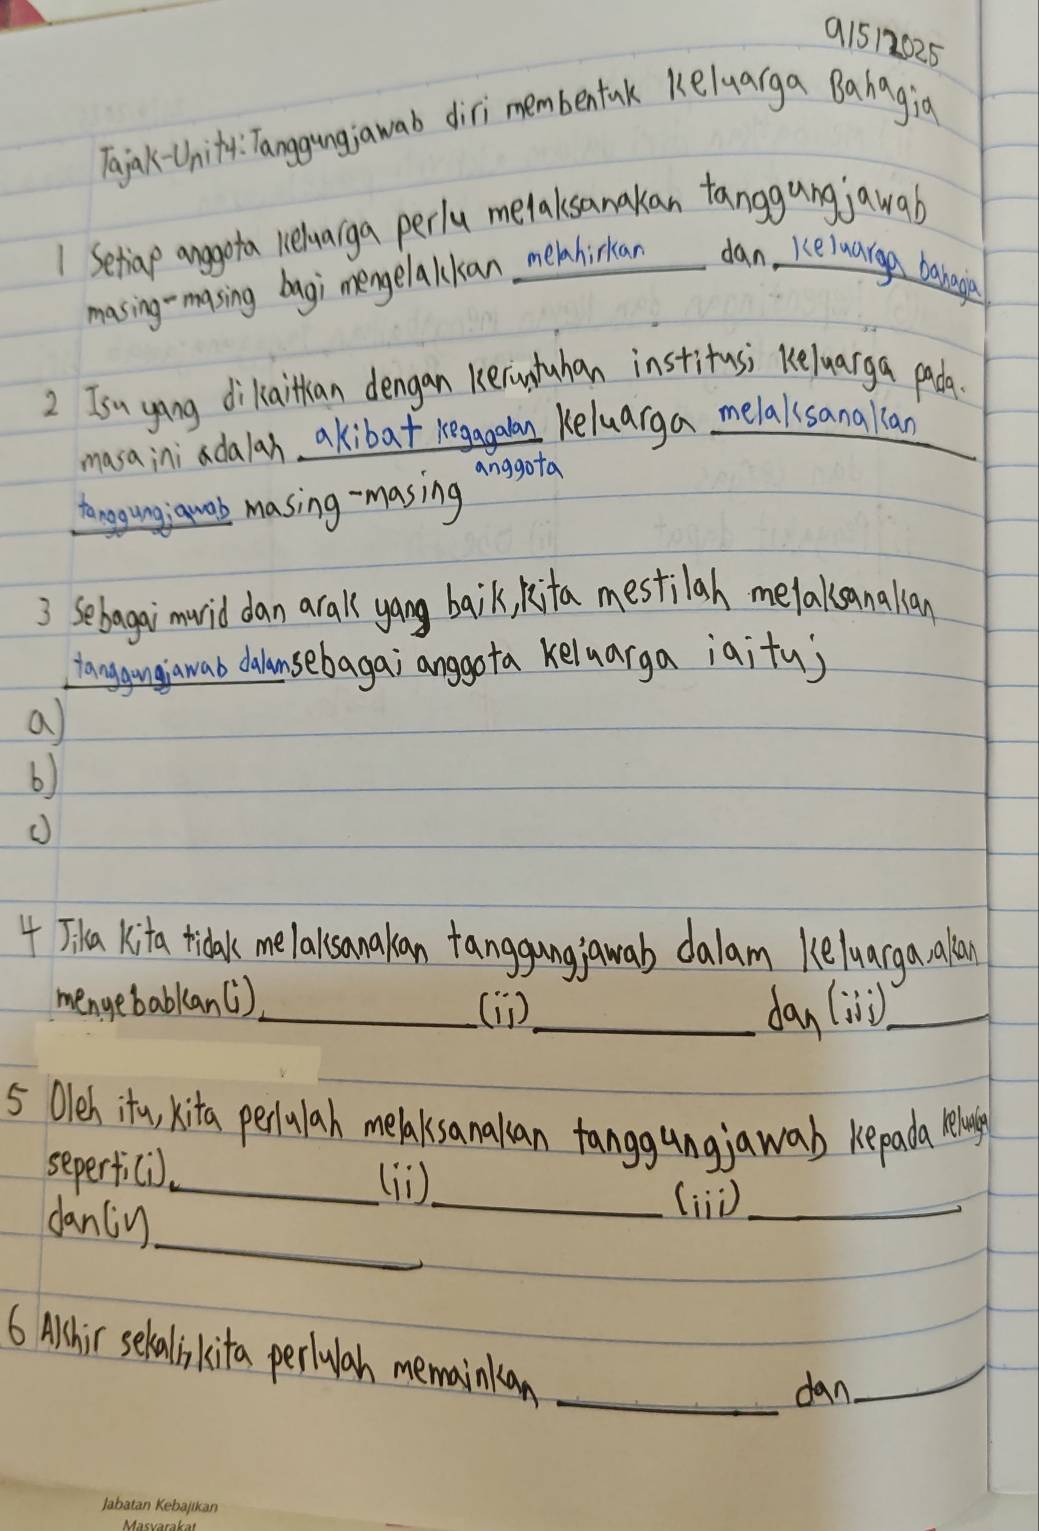 9/5/2025
Tajak-Unity: Tanggungjawab diri membentuk keluarga Bahagia
1 Setiap anggota keluarga perlu melaksanakan tanggungjawab
masing-masing bagi mengelakkan melahirkan dan keluarga bahagia
2 Isu yang dikaitkan dengan keruntuhan institusi keluarga pada
masa ini adalah akibat kegagalan keluarga melaksanakan
anggota
tanggungjawab masing-masing
3 Sebagai murid dan anak yang baik, kita mestilah melaksanakan
tanggungjawab dalam sebagai anggota keluarga iaitu;
a)
b)
c)
4 Jika kita tidak melaksanakan tanggungjawab dalam keluarga, akan
menyebabkan (i) (ii) dan (iii)
5 Oleh itu, kita perlulah melaksanakan tanggungjawab kepada keluarga
seperti (i). (ii) (iii)
dan (iv)
6 Akhir sekali, kita perlulah memainkan dan
Jabatan Kebajikan
Masyarakat